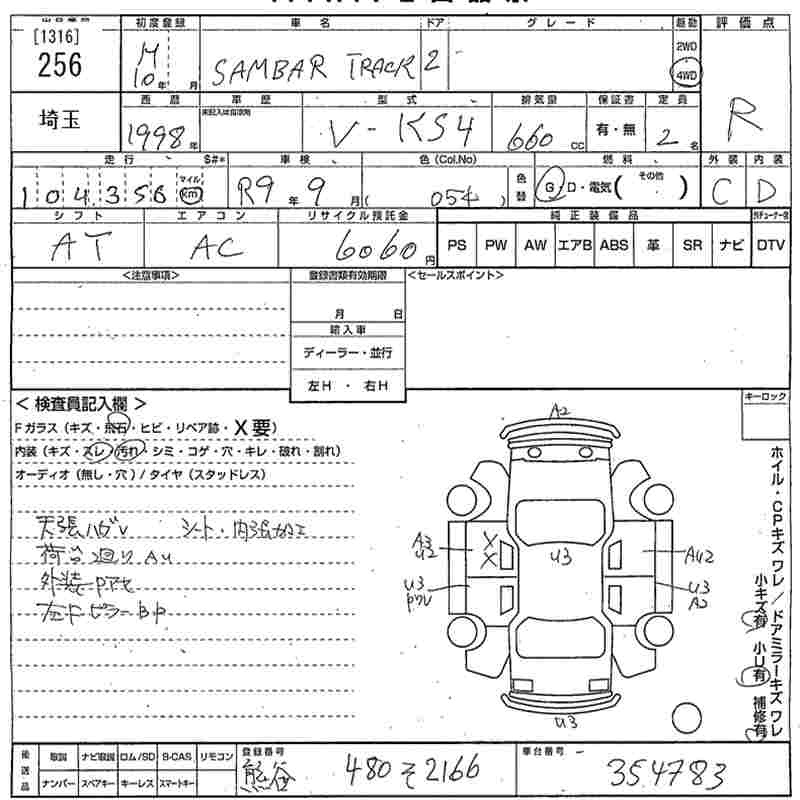 [1316]
256
埼玉
初度登録
H
10年 月
車名
SAMBAR TRACK
ドア
2
グレード
-
駆動
2WD
4WD
評価点
R
西暦
1998年
車歴
未記入は自家用
型式
V-KS4
排気量
660 CC
保証書
有・無
定員
2名
走行 S#*
104356
マイル
km
車検
R9年 9月
色(Col.No)
( 054 )
色替
燃料
G・D・電気( その他 )
外装
C
内装
D
シフト
AT
エアコン
AC
リサイクル預託金
6060円
純正装備品
PS PW AW エアB ABS 革 SR ナビ DTV
<注意事項>
登録書類有効期限
月 日
輸入車
ディーラー・並行
左H ・ 右H
<セールスポイント>
キーロック
<検査員記入欄>
Fガラス(キズ・飛石・ヒビ・リペア跡・X要)
内装(キズ・スレ・汚れ・シミ・コゲ・穴・キレ・破れ・割れ)
オーディオ(無し・穴)/タイヤ(スタッドレス)
天張ハガレ シート・内張加工
荷台廻りAU
外装Pアセ
左FピラーBP
A2
A3
U2
X
X
U3
AU2
U3
Pワレ
U3
A2
U3
ホイル・CPキズワレ/ドアミラーキズワレ
小キズ有 小U有 補修有
後送品
取説 ナビ取説 ロム/SD B-CAS リモコン
ナンバー スペアキー キーレス スマートキー
登録番号
熊谷 480 そ 2166
車台番号
354783